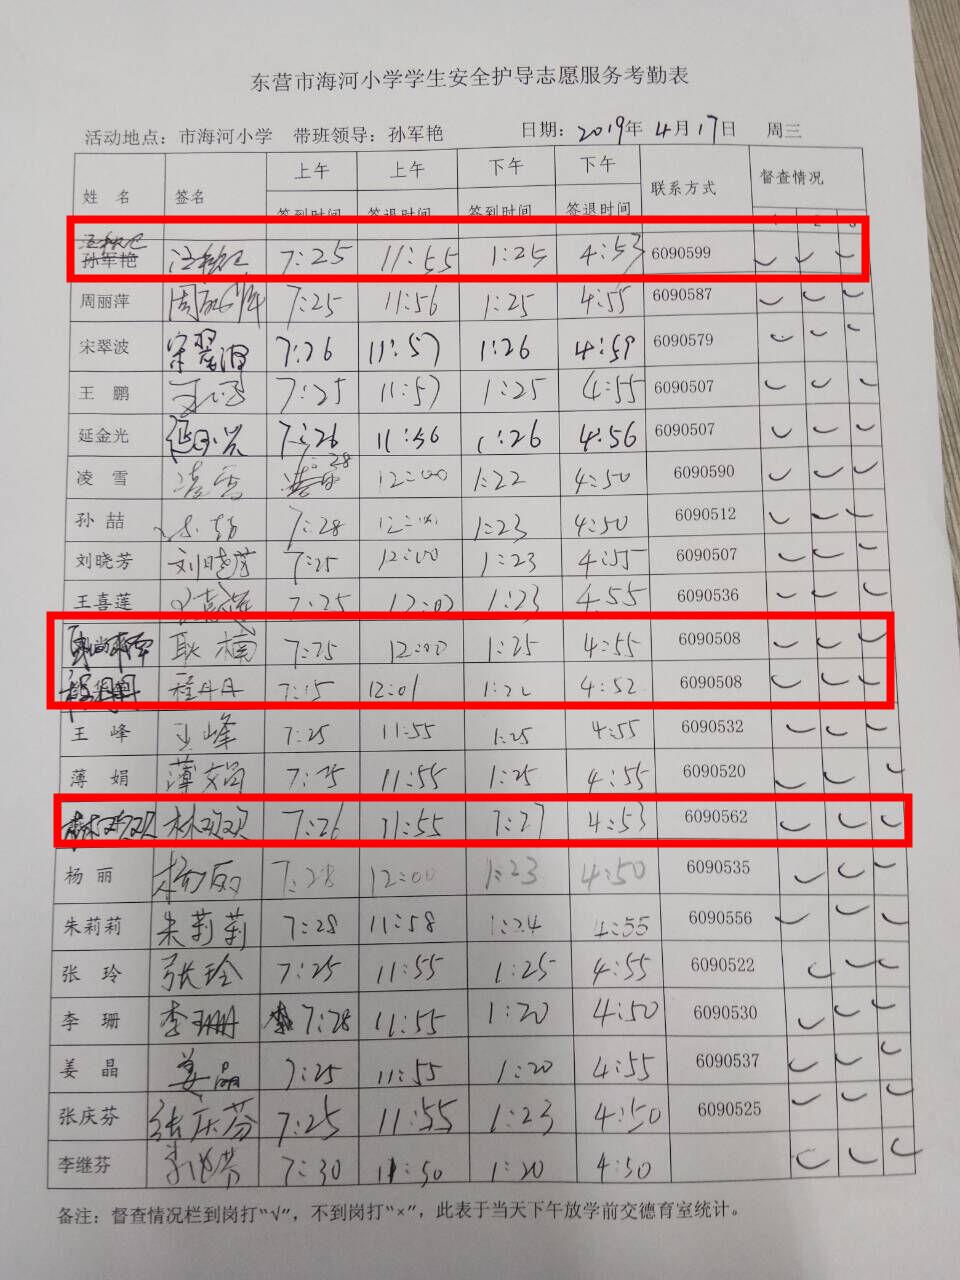 东营市海河小学学生安全护导志愿服务考勤表
活动地点：市海河小学 带班领导：孙军艳 日期：2019年4月17日 周三
姓 名 签名 上午 上午 下午 下午 联系方式 督查情况
签到时间 签退时间 签到时间 签退时间 1 2 3
孙军艳 7:25 11:55 1:25 4:53 6090599
周丽萍 周丽萍 7:25 11:56 1:25 4:55 6090587
宋翠波 宋翠波 7:26 11:57 1:26 4:59 6090579
王 鹏 王鹏 7:25 11:57 1:25 4:55 6090507
延金光 延金光 7:26 11:56 1:26 4:56 6090507
凌 雪 凌雪 28 12:00 1:22 4:50 6090590
孙 喆 孙喆 7:28 12:00 1:23 4:50 6090512
刘晓芳 刘晓芳 7:25 12:00 1:23 4:55 6090507
王喜莲 王喜莲 7:25 12:02 1:23 4:55 6090536
耿楠 7:25 12:00 1:25 4:55 6090508
程丹丹 7:15 12:01 1:22 4:52 6090508
王 峰 王峰 7:25 11:55 1:25 4:55 6090532
薄 娟 薄娟 7:25 11:55 1:25 4:55 6090520
林欢欢 林欢欢 7:26 11:55 1:27 4:53 6090562
杨 丽 杨丽 7:28 12:00 1:23 4:50 6090535
朱莉莉 朱莉莉 7:28 11:58 1:24 4:55 6090556
张 玲 张玲 7:25 11:55 1:25 4:55 6090522
李 珊 李珊 7:28 11:55 1:20 4:50 6090530
姜 晶 姜晶 7:25 11:55 1:20 4:55 6090537
张庆芬 张庆芬 7:25 11:55 1:23 4:50 6090525
李继芬 李继芬 7:30 11:50 1:20 4:50
备注：督查情况栏到岗打“√”，不到岗打“×”，此表于当天下午放学前交德育室统计。